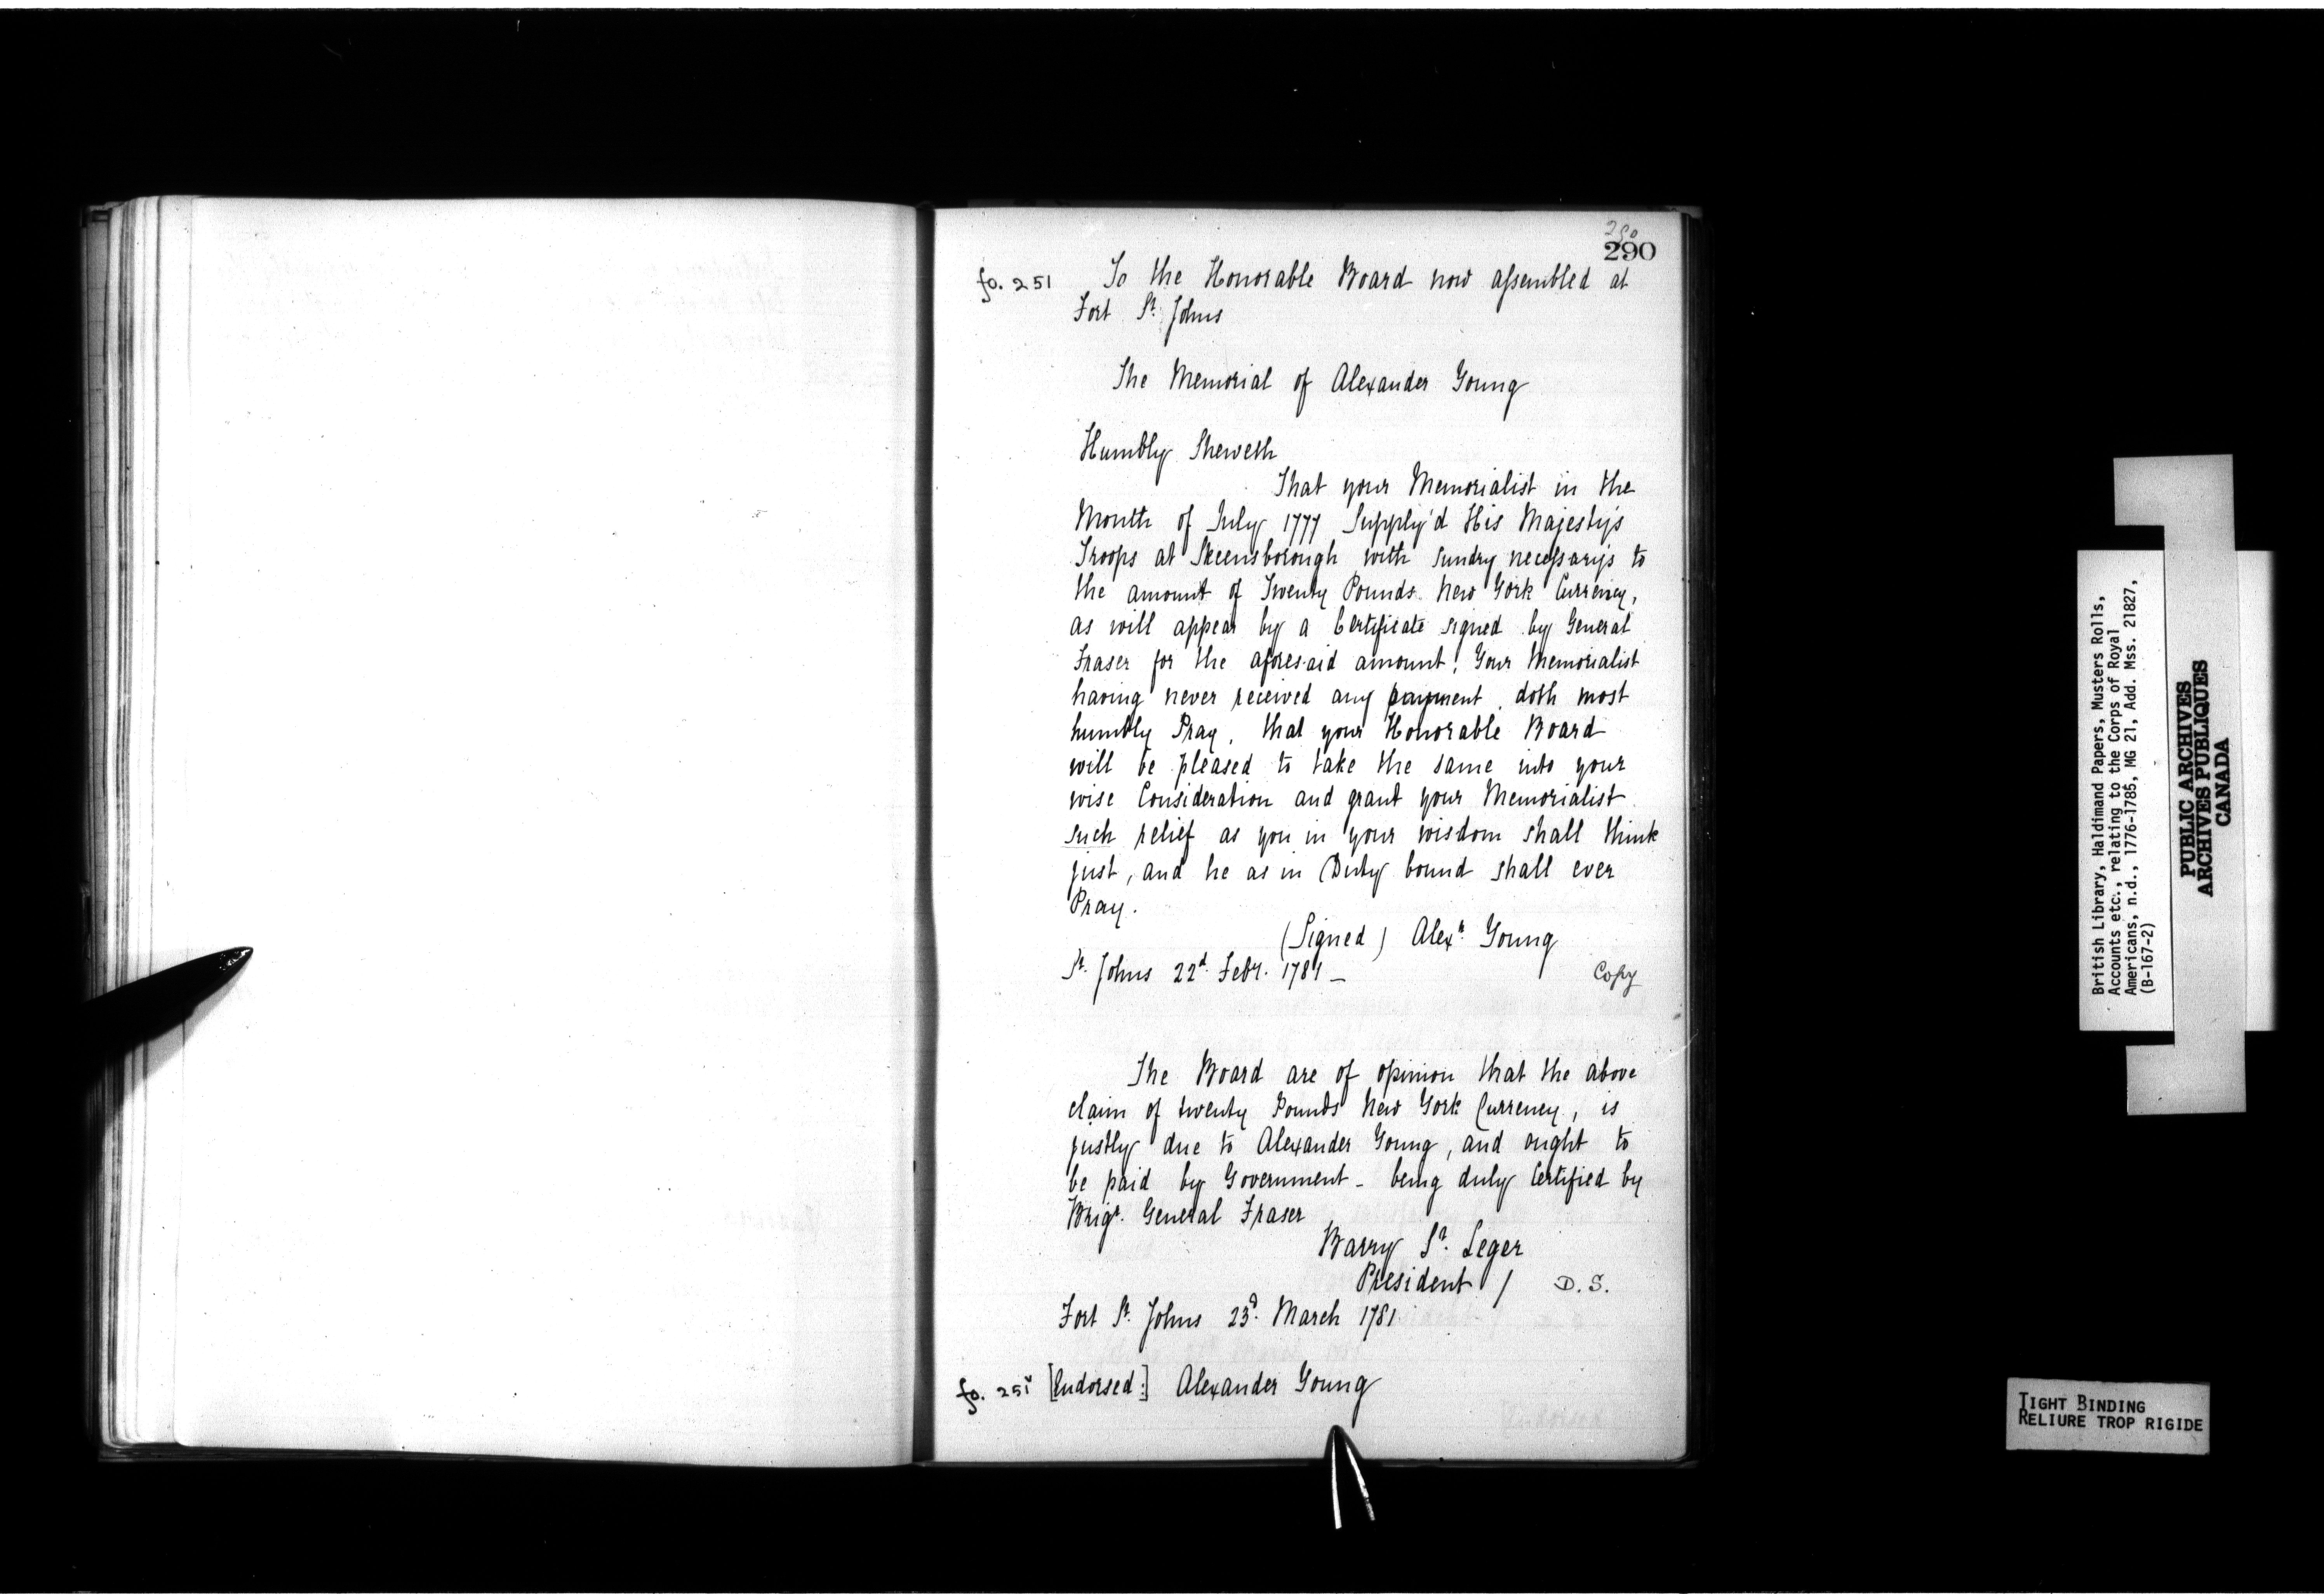 290
290
fo. 251 To the Honorable Board now assembled at
Fort St. Johns
The Memorial of Alexander Young
Humbly Sheweth
That your Memorialist in the
Month of July 1777 Supply'd His Majesty's
Troops at Skeensborough with sundry necessarys to
the amount of Twenty Pounds New York Currency,
as will appear by a Certificate signed by General
Fraser for the aforesaid amount! Your Memorialist
having never received any payment, doth most
humbly Pray, that your Honorable Board
will be pleased to take the same into your
wise Consideration and grant your Memorialist
such relief as you in your wisdom shall think
just, and he as in Duty bound shall ever
Pray.
(Signed) Alexr. Young
St. Johns 22d. Febr. 1781 –
Copy
The Board are of opinion that the above
claim of twenty Pounds New York Currency, is
justly due to Alexander Young, and ought to
be paid by Government – being duly Certified by
Brigr. General Fraser
Barry St. Leger
President / D.S.
Fort St. Johns 23d. March 1781
fo. 251v [Endorsed:] Alexander Young
British Library, Haldimand Papers, Musters Rolls,
Accounts etc., relating to the Corps of Royal
Americans, n.d., 1776-1785, MG 21, Add. Mss. 21827,
(B-167-2)
PUBLIC ARCHIVES
ARCHIVES PUBLIQUES
CANADA
TIGHT BINDING
RELIURE TROP RIGIDE